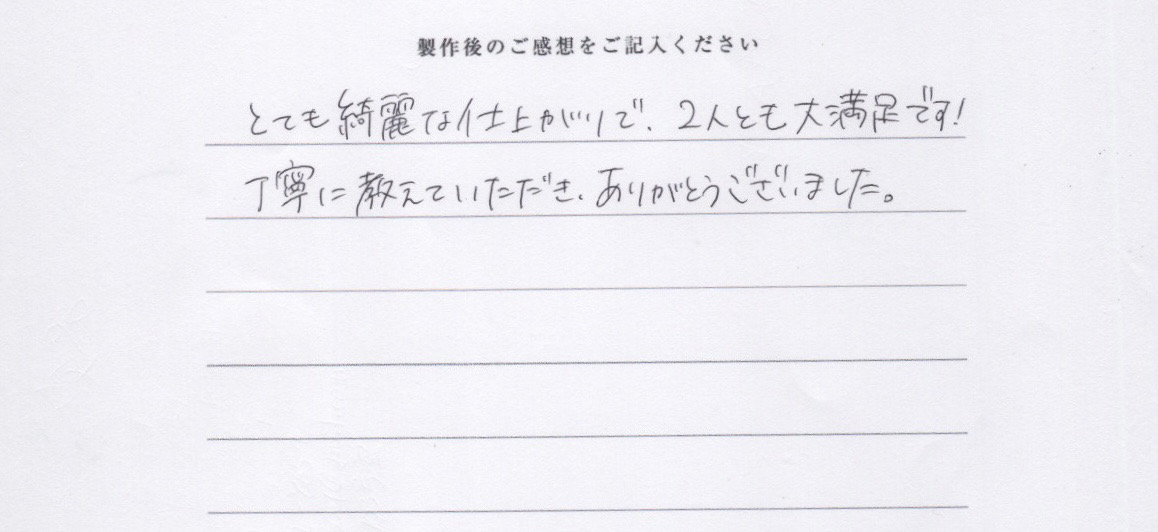 製作後のご感想をご記入ください
とても綺麗な仕上がりで、2人とも大満足です!
丁寧に教えていただき、ありがとうございました。